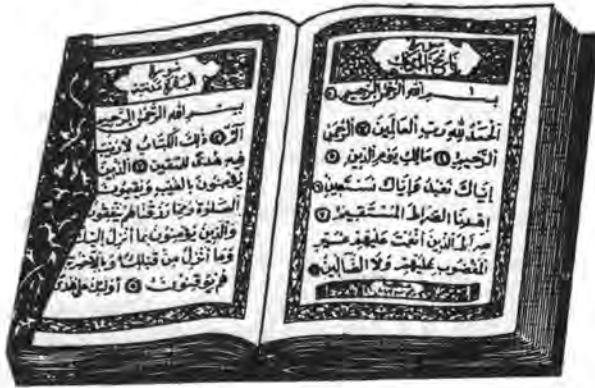 سورة
فاتحة الكتاب
بسم الله الرحمن الرحيم ١
الحمد لله رب العالمين الرحمن
الرحيم مالك يوم الدين
إياك نعبد وإياك نستعين
اهدنا الصراط المستقيم
صراط الذين أنعمت عليهم غير
المغضوب عليهم ولا الضالين
سورة
البقرة مدنية
بسم الله الرحمن الرحيم
الم ذلك الكتاب لا ريب
فيه هدى للمتقين الذين
يؤمنون بالغيب ويقيمون
الصلوة ومما رزقناهم ينفقون
والذين يؤمنون بما أنزل إليك
وما أنزل من قبلك وبالآخرة
هم يوقنون أولئك على هدى